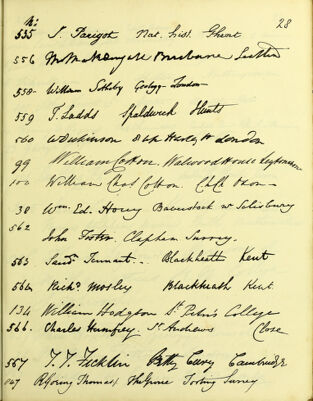 No: 28
535 S. Parigot Nat. hist. Ghent
556 Brisbane
558 William Sotheby Geology London
559 T. Ladds Spaldwick Hunts
560 W Dickinson Harley St London
99 William Cotton. Walwood House
100 William Chas Cotton. Ch Ch Oxon
38 Wm. Ed. Hony Baverstock nr Salisbury
562
John Foster. Clapham Surrey.
563 Saml Tennant. Blackheath Kent
564 Richd Mosley Blackheath Kent
134 William Hodgson St Peter's College
566. Charles Humfrey. St Andrews Close
567 T. T. Ficklin Cambridge
Thomas Tooting Surrey